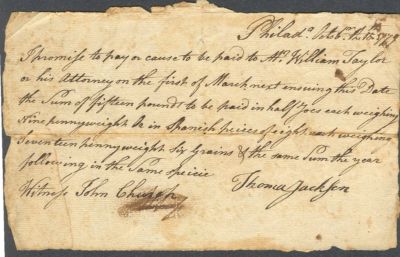 Philada Octobr 12th 1779
I Promise to pay or cause to be paid to Mr William Taylor
or his Attorney on the first of March next ensuing this Date
the Sum of fifteen pounds to be paid in half Joes each weighing
Nine pennyweight & in Spanish peices of eight each weighing
Seventeen pennyweight Six Grains & the same Sum the year
following in the Same speicie
Witness John Church Thomas Jackson